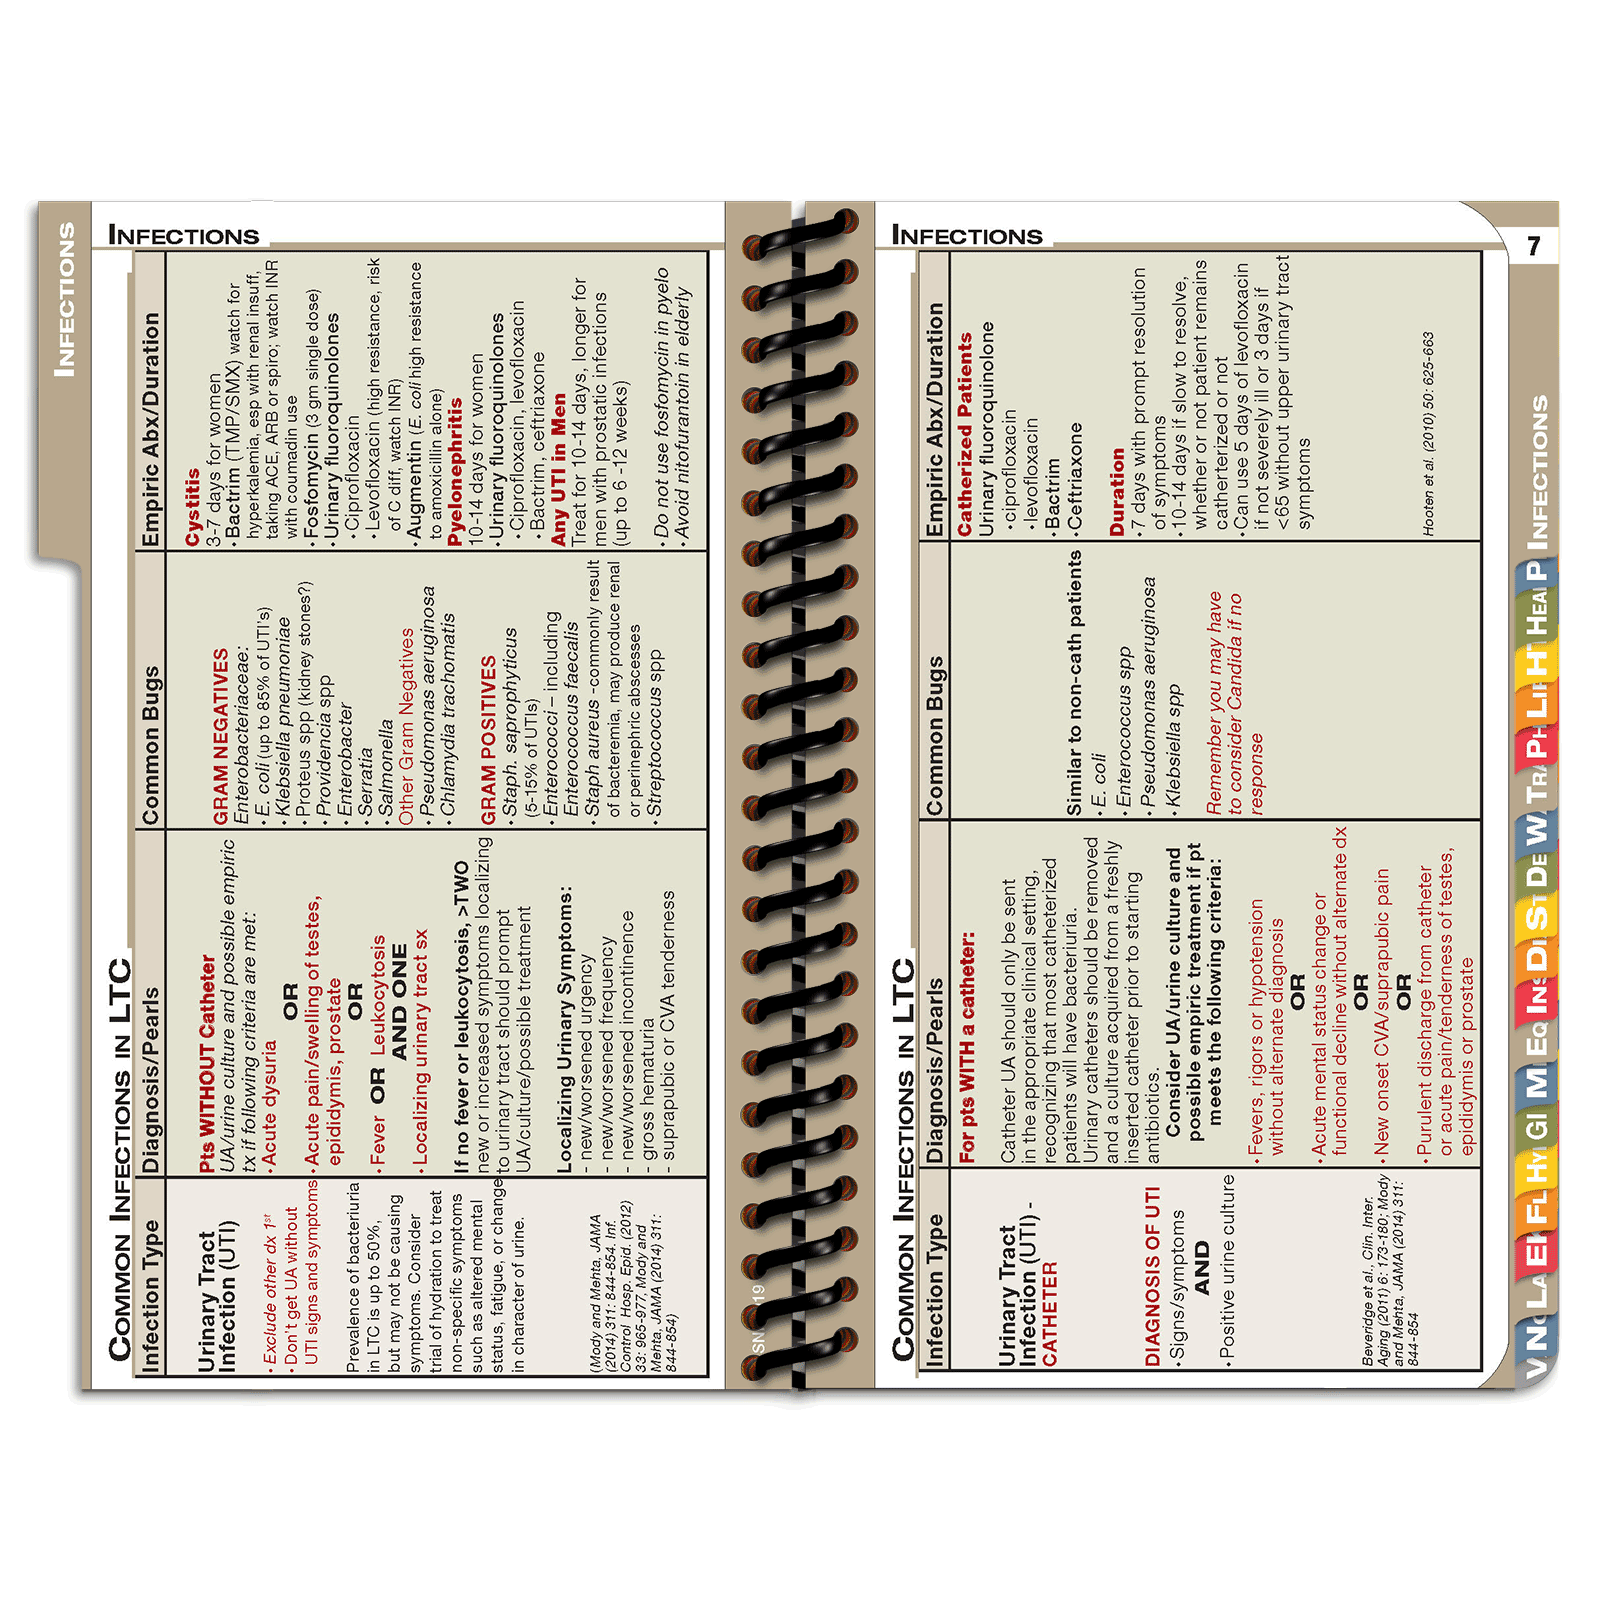 INFECTIONS
INFECTIONS
COMMON INFECTIONS IN LTC
Infection Type
Diagnosis/Pearls
Common Bugs
Empiric Abx/Duration
Urinary Tract
Infection (UTI)
• Exclude other dx 1st
• Don't get UA without
UTI signs and symptoms
Prevalence of bacteriuria
in LTC is up to 50%,
but may not be causing
symptoms. Consider
trial of hydration to treat
non-specific symptoms
such as altered mental
status, fatigue, or change
in character of urine.
(Mody and Mehta, JAMA
(2014) 311: 844-854. Inf.
Control Hosp. Epid. (2012)
33: 965-977, Mody and
Mehta, JAMA (2014) 311:
844-854)
Pts WITHOUT Catheter
UA/urine culture and possible empiric
tx if following criteria are met:
• Acute dysuria
OR
• Acute pain/swelling of testes,
epididymis, prostate
OR
• Fever OR Leukocytosis
AND ONE
• Localizing urinary tract sx
If no fever or leukocytosis, >TWO
new or increased symptoms localizing
to urinary tract should prompt
UA/culture/possible treatment
Localizing Urinary Symptoms:
- new/worsened urgency
- new/worsened frequency
- new/worsened incontinence
- gross hematuria
- suprapubic or CVA tenderness
GRAM NEGATIVES
Enterobacteriaceae:
• E. coli (up to 85% of UTI's)
• Klebsiella pneumoniae
• Proteus spp (kidney stones?)
• Providencia spp
• Enterobacter
• Serratia
• Salmonella
Other Gram Negatives
• Pseudomonas aeruginosa
• Chlamydia trachomatis
GRAM POSITIVES
• Staph. saprophyticus
(5-15% of UTIs)
• Enterococci – including
Enterococcus faecalis
• Staph aureus -commonly result
of bacteremia, may produce renal
or perinephric abscesses
• Streptococcus spp
Cystitis
3-7 days for women
• Bactrim (TMP/SMX) watch for
hyperkalemia, esp with renal insuff,
taking ACE, ARB or spiro; watch INR
with coumadin use
• Fosfomycin (3 gm single dose)
• Urinary fluoroquinolones
• Ciprofloxacin
• Levofloxacin (high resistance, risk
of C diff, watch INR)
• Augmentin (E. coli high resistance
to amoxicillin alone)
Pyelonephritis
10-14 days for women
• Urinary fluoroquinolones
• Ciprofloxacin, levofloxacin
• Bactrim, ceftriaxone
Any UTI in Men
Treat for 10-14 days, longer for
men with prostatic infections
(up to 6 -12 weeks)
• Do not use fosfomycin in pyelo
• Avoid nitofurantoin in elderly
INFECTIONS
7
COMMON INFECTIONS IN LTC
Infection Type
Diagnosis/Pearls
Common Bugs
Empiric Abx/Duration
Urinary Tract
Infection (UTI) -
CATHETER
DIAGNOSIS OF UTI
• Signs/symptoms
AND
• Positive urine culture
Beveridge et al., Clin. Inter.
Aging (2011) 6: 173-180; Mody
and Mehta, JAMA (2014) 311:
844-854
For pts WITH a catheter:
Catheter UA should only be sent
in the appropriate clinical setting,
recognizing that most catheterized
patients will have bacteriuria.
Urinary catheters should be removed
and a culture acquired from a freshly
inserted catheter prior to starting
antibiotics.
Consider UA/urine culture and
possible empiric treatment if pt
meets the following criteria:
• Fevers, rigors or hypotension
without alternate diagnosis
OR
• Acute mental status change or
functional decline without alternate dx
OR
• New onset CVA/suprapubic pain
OR
• Purulent discharge from catheter
or acute pain/tenderness of testes,
epididymis or prostate
Similar to non-cath patients
• E. coli
• Enterococcus spp
• Pseudomonas aeruginosa
• Klebsiella spp
Remember you may have
to consider Candida if no
response
Catherized Patients
Urinary fluoroquinolone
• ciprofloxacin
• levofloxacin
• Bactrim
• Ceftriaxone
Duration
• 7 days with prompt resolution
of symptoms
• 10-14 days if slow to resolve,
whether or not patient remains
catherterized or not
• Can use 5 days of levofloxacin
if not severely ill or 3 days if
<65 without upper urinary tract
symptoms
Hooten et al. (2010) 50: 625-663
INFECTIONS